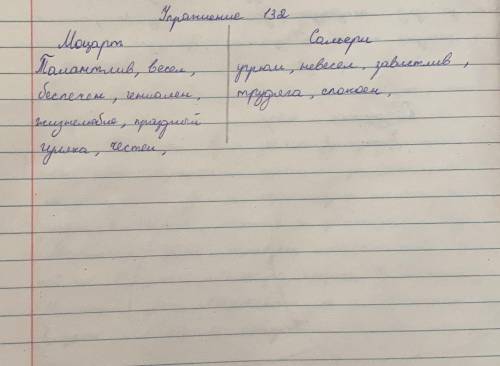 Упражнение 132
Моцарт Сальери
Талантлив, весел, угрюм, невесел, завистлив,
беспечен, гениален, трудяга, спокоен,
жизнелюбив, праздный
гуляка, честен,